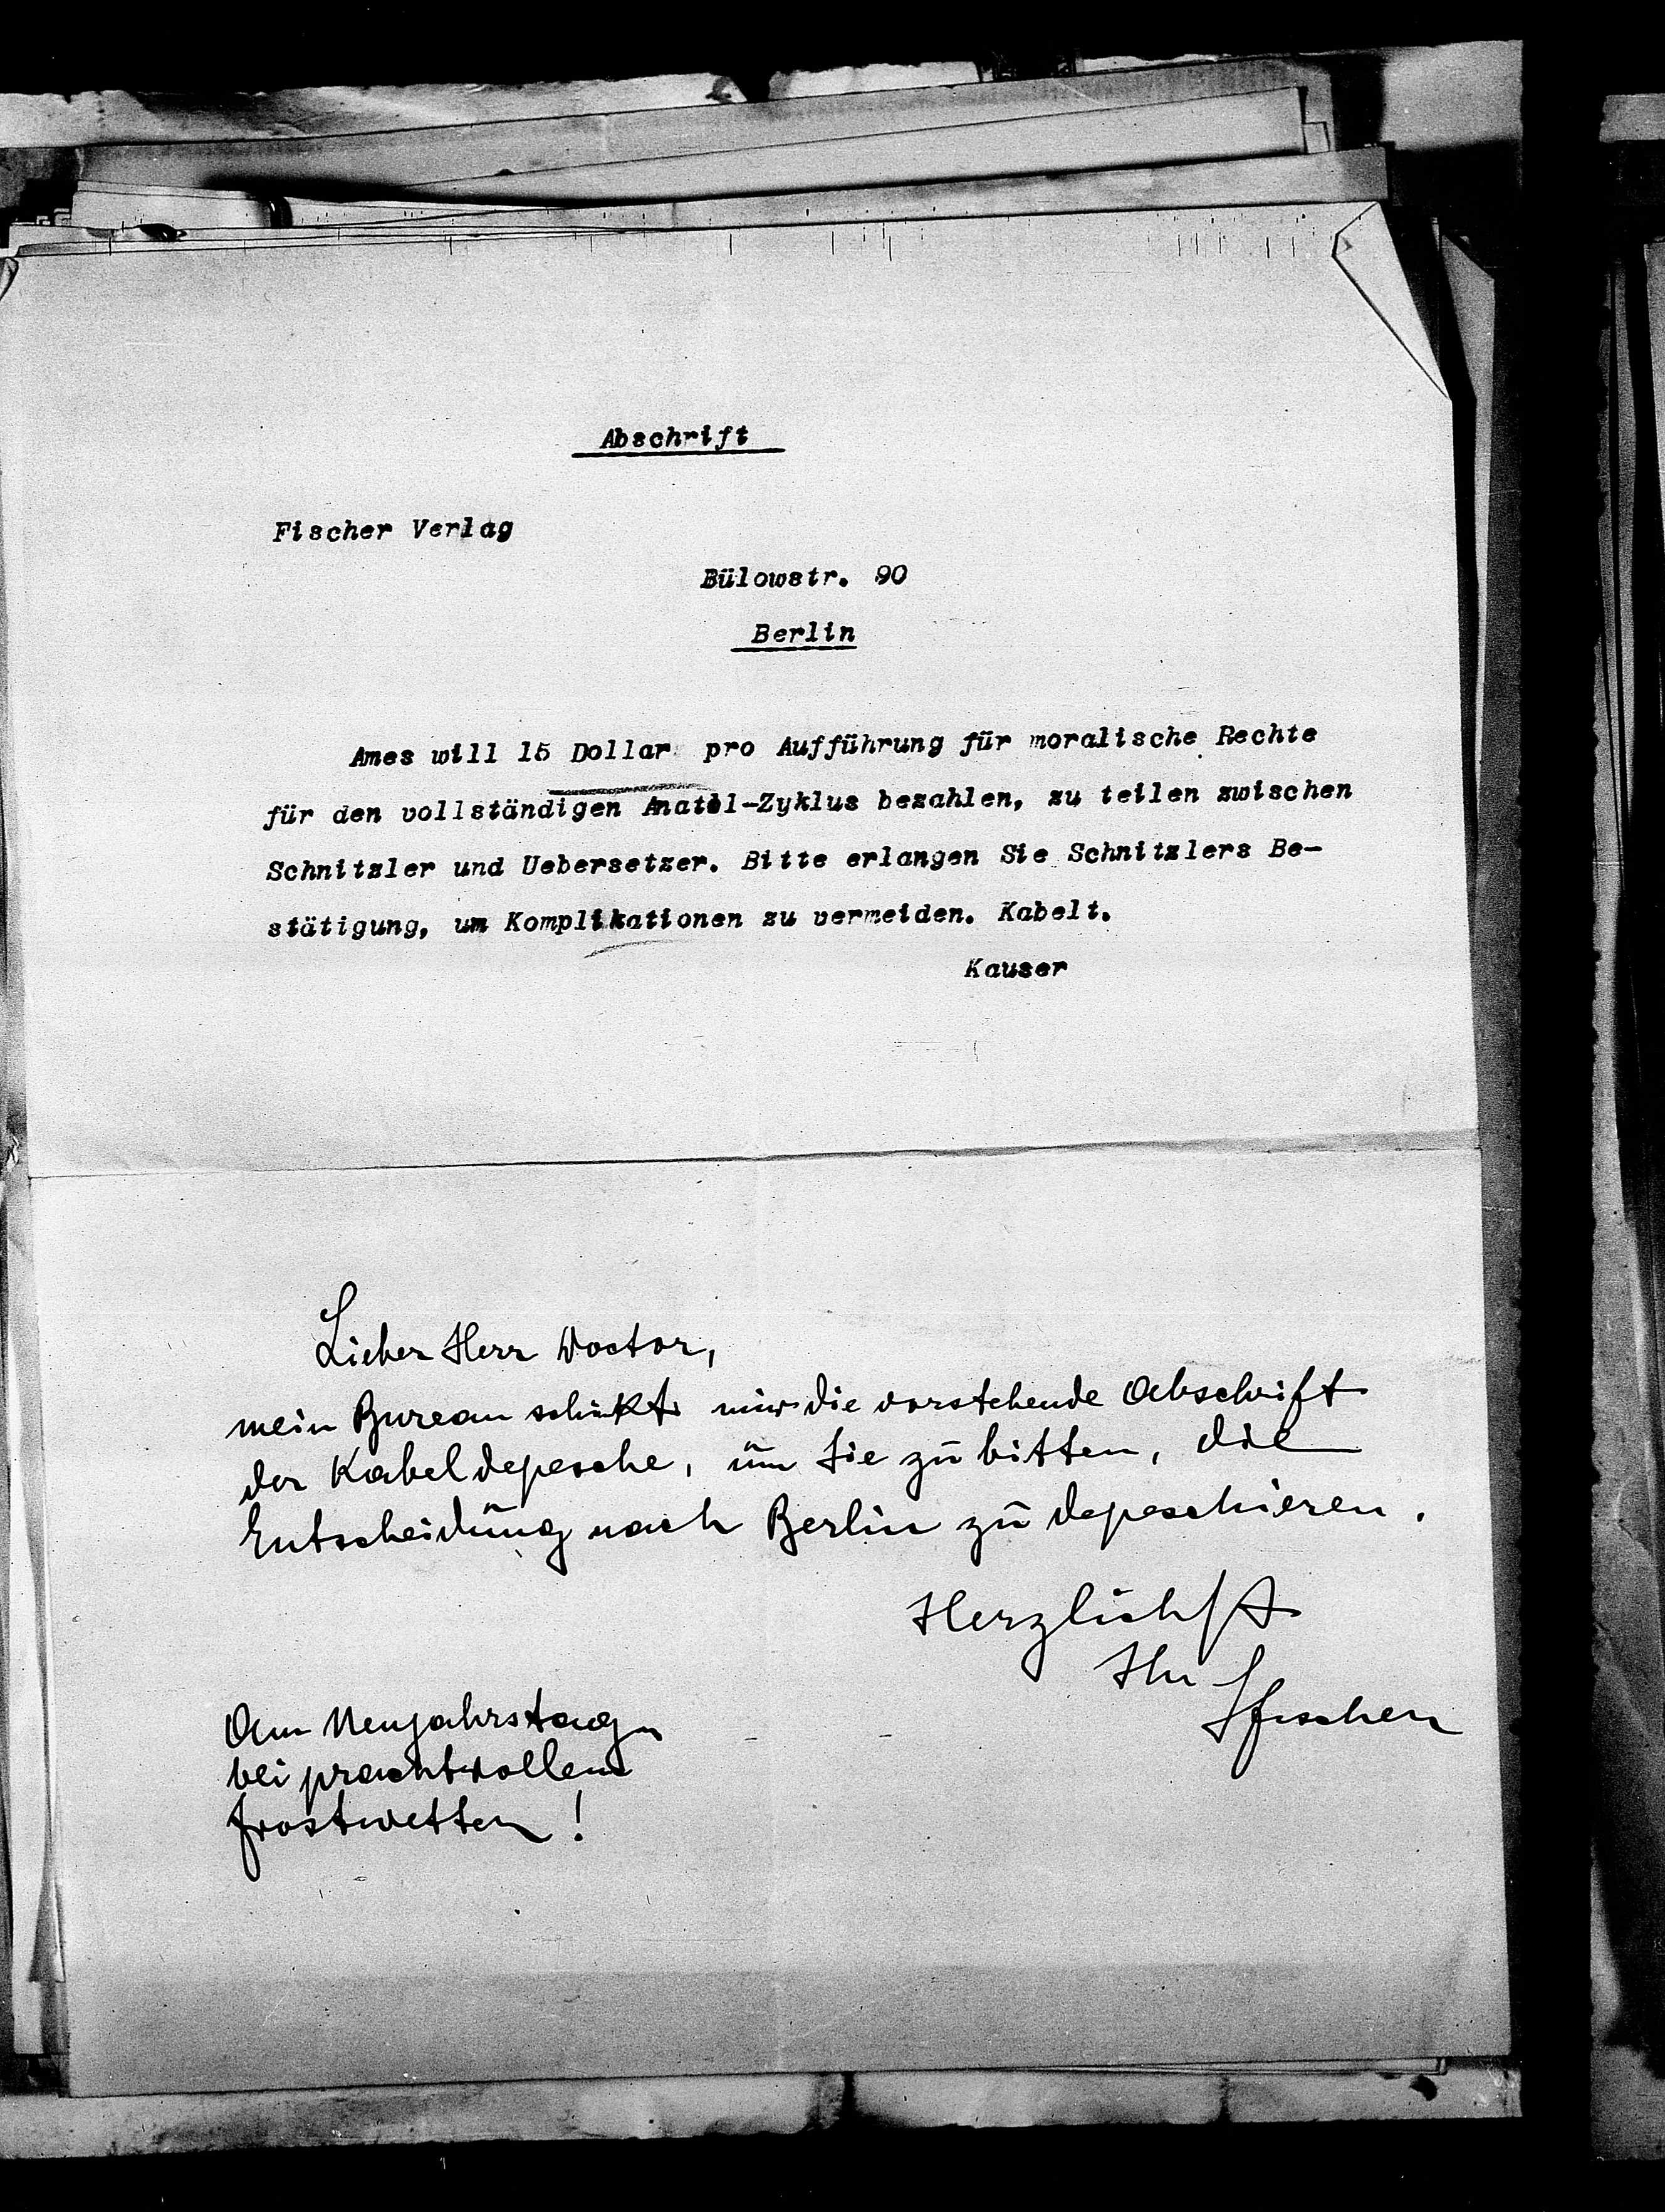 Abschrift
Fischer Verlag
Bülowstr. 90
Berlin
Ames will 15 Dollar pro Aufführung für moralische Rechte
für den vollständigen Anatol-Zyklus bezahlen, zu teilen zwischen
Schnitzler und Uebersetzer. Bitte erlangen Sie Schnitzlers Be-
stätigung, um Komplikationen zu vermeiden. Kabelt.
Kauser
Lieber Herr Doctor,
mein Bureau schickt mir die vorstehende Abschrift
der Kabeldepesche, um Sie zu bitten, die
Entscheidung nach Berlin zu depeschieren.
Herzlichst
Ihr SFischer
Am Neujahrstag
bei prachtvollem
Frostwetter!